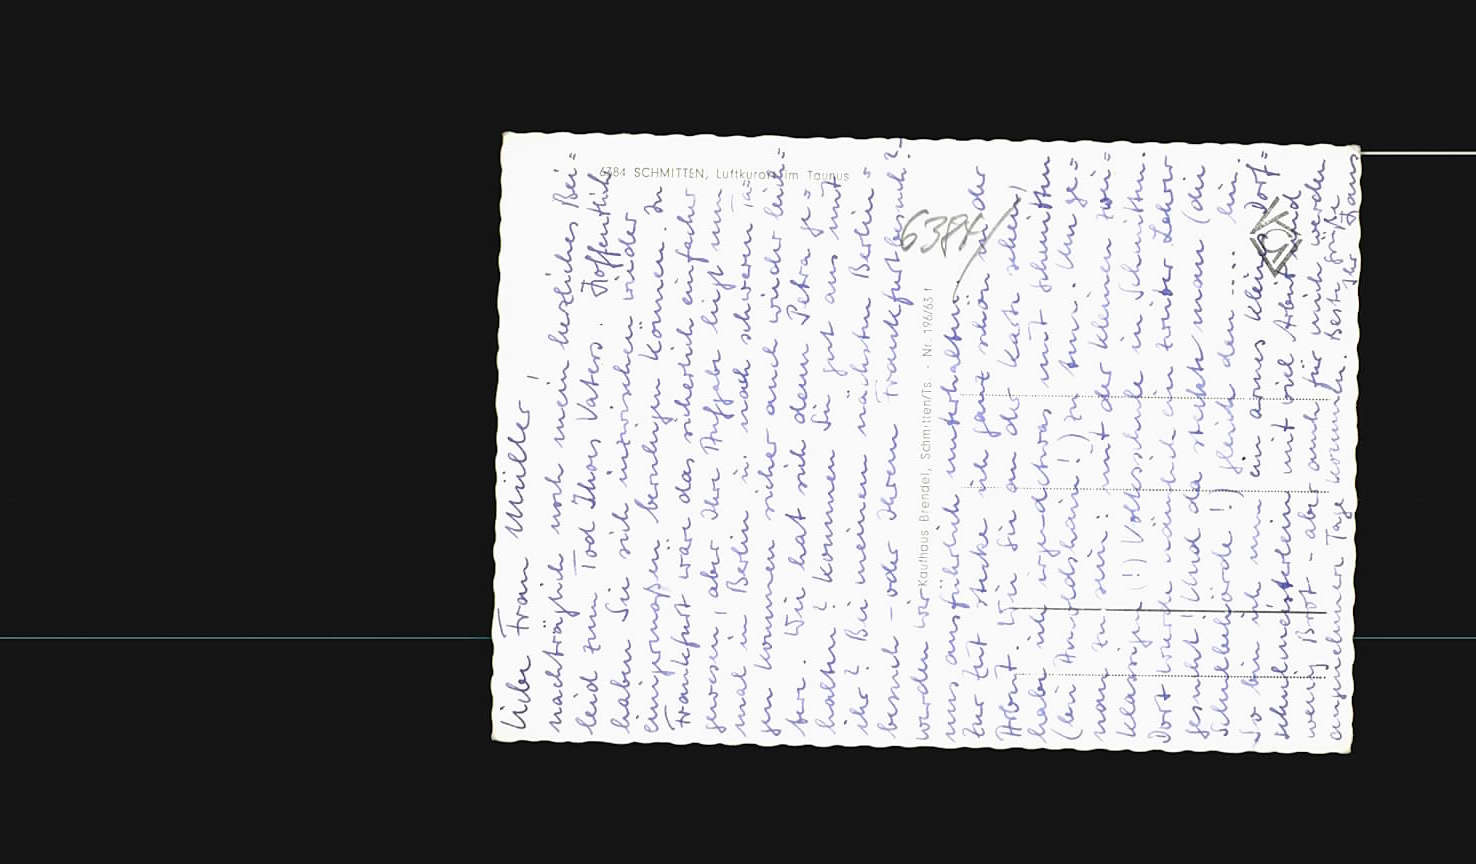 6384 SCHMITTEN, Luftkurort im Taunus
6384/
Kaufhaus Brendel, Schmitten/Ts. - Nr. 196/63 f
Liebe Frau Müller!
nachträglich noch mein herzliches Bei=
leid zum Tod Ihres Vaters. Hoffentlich
haben Sie sich inzwischen wieder
einigermaßen beruhigen können. In
Frankfurt wäre das sicherlich einfacher
gewesen, aber Ihre Aufgabe liegt nun
mal in Berlin u. nach schweren Ta=
gen kommen sicher auch wieder leich=
tere. Wie hat sich denn Petra ge=
halten? Kommen Sie gut aus mit
ihr? Bei meinem nächsten Berlin=
besuch - oder Ihrem Frankfurtbesuch?-
werden wir
uns ausführlich unterhalten.
Zur Zeit stecke ich ganz schön in der
Arbeit. Wie Sie an der Karte sehen,
habe ich irgendetwas mit Schmitten
(bei Arnoldshain!) zu tun. Um ge=
nau zu sein: mit der kleinen zwei=
klassigen (!) Volksschule in Schmitten.
Dort wurde nämlich ein zweiter Lehrer
gesucht! Und da steckte man (die
Schulbehörde!) gleich den .... hin.
So bin ich nun ein armes kleines Dorf=
schulmeisterlein mit viel Arbeit und
wenig Brot - aber auch für mich werden
angenehmere Tage kommen. Beste Grüße
Ihr Hans